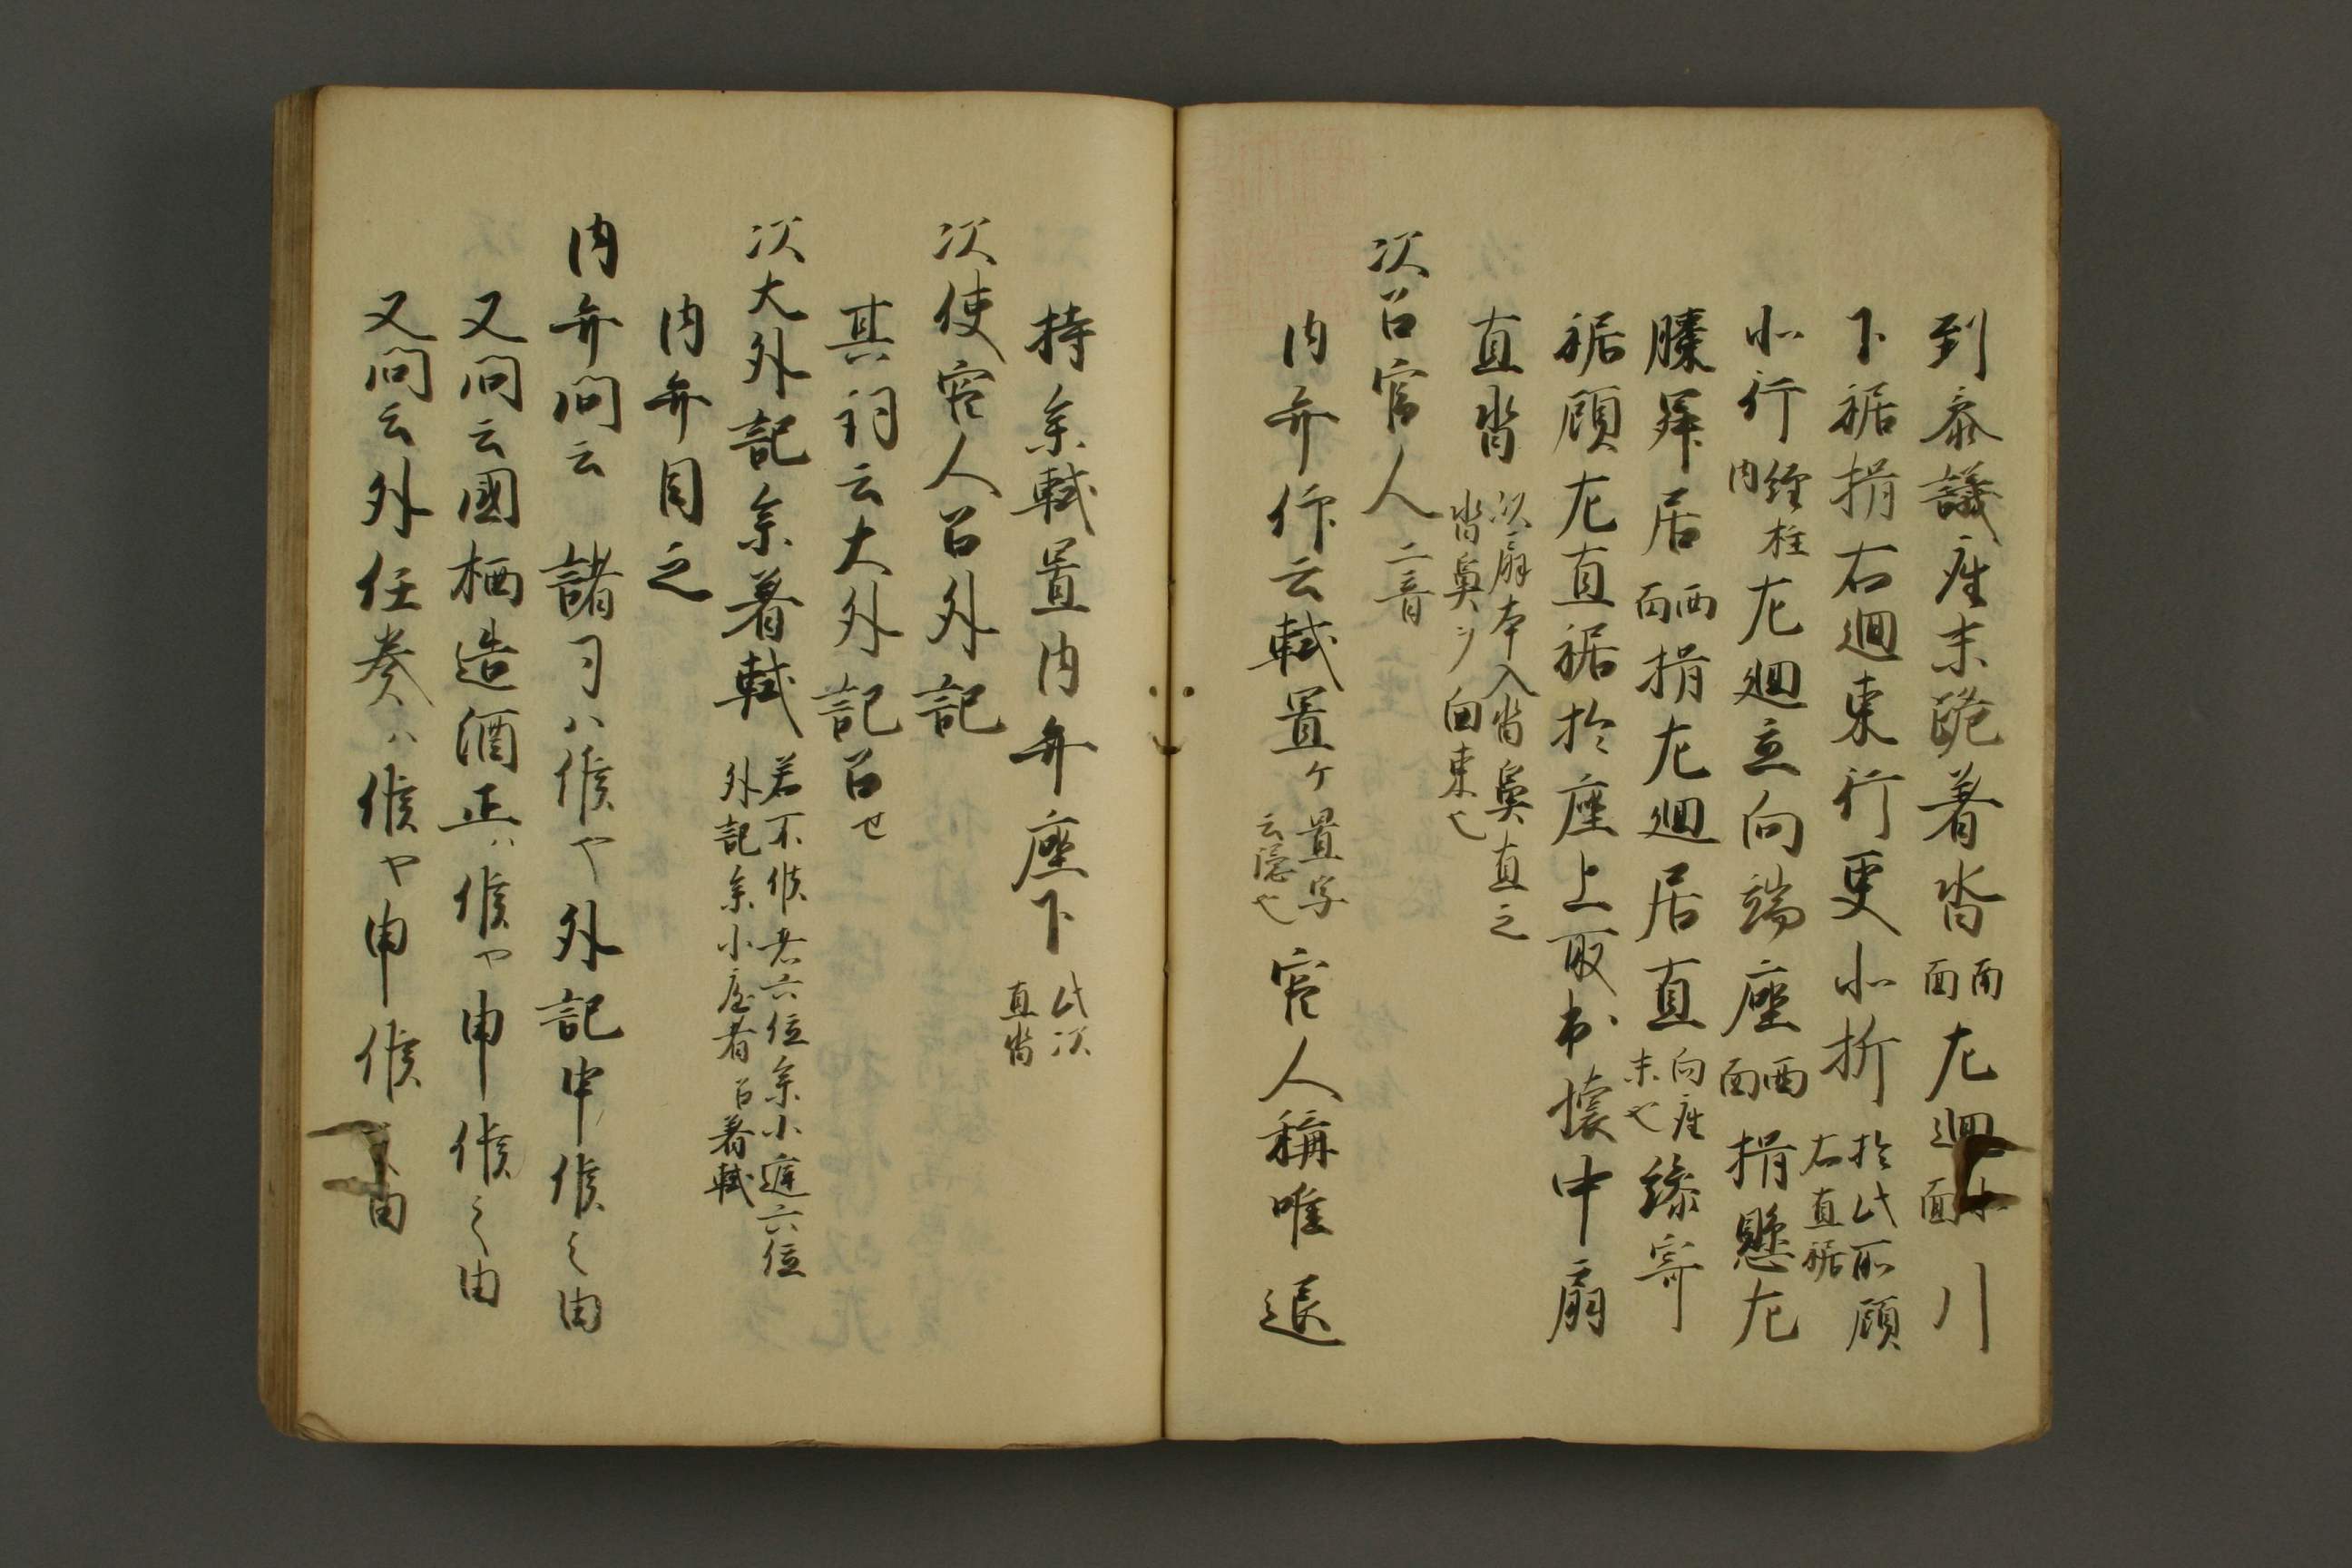 到参議座末跪着沓南面左廻北面
下裾揖右廻東行更北折於此所顧右直裾
北行経柱内左廻立向端座西面揖懸左
膝昇居西面揖左廻居直向座末也縁寄
裾顧左直裾於座上取出懐中扇
直沓以扇本入沓鼻直之沓鼻ヲ向東也
次召官人二音
内弁仰云軾置ケ置字云隠也官人称唯退
持参軾置内弁座下此次直沓
次使官人召外記
其詞云大外記召セ
次大外記参着軾若不候者六位参小庭六位外記参小庭者召着軾
内弁目之
内弁問云諸司ハ候ヤ外記申候之由
又問云國栖造酒正ハ候ヤ申候之由
又問云外任奏ハ候ヤ申候由